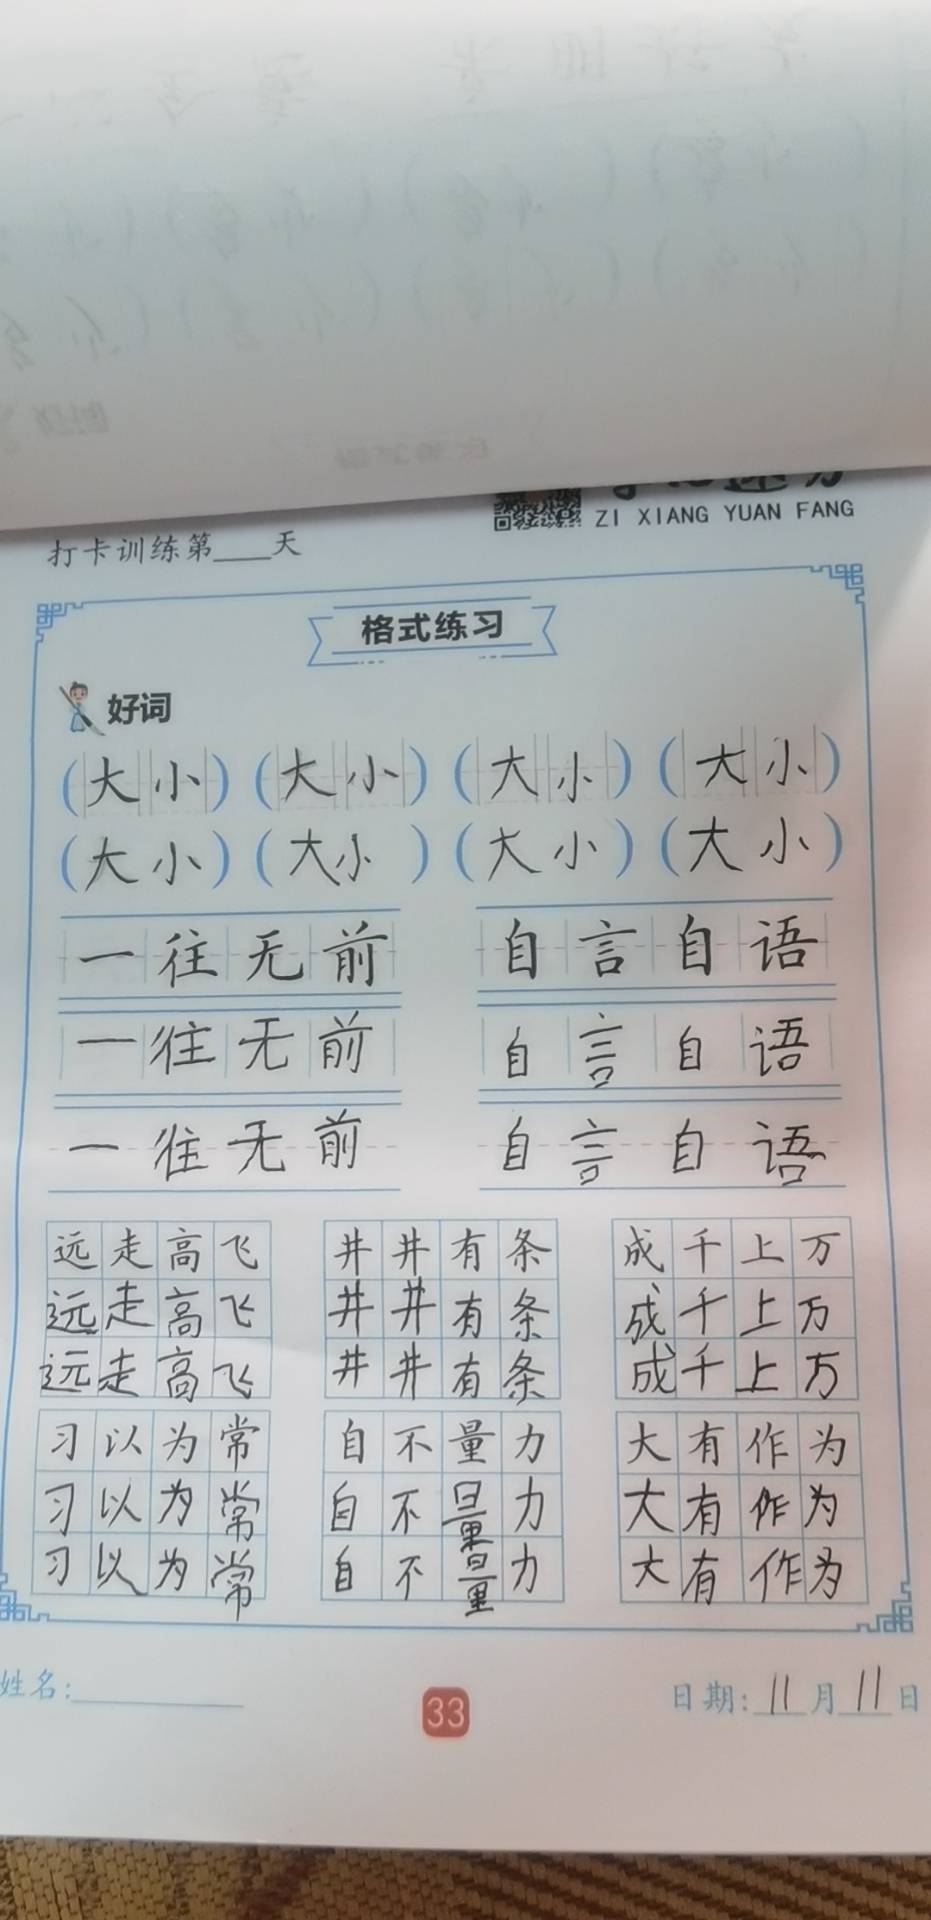 ZI XIANG YUAN FANG
打卡训练第____天
格式练习
好词
(大小) (大小) (大小) (大小)
(大小) (大小) (大小) (大小)
一往无前 自言自语
一往无前 自言自语
一往无前 自言自语
远走高飞 井井有条 成千上万
远走高飞 井井有条 成千上万
远走高飞 井井有条 成千上万
习以为常 自不量力 大有作为
习以为常 自不量力 大有作为
习以为常 自不量力 大有作为
姓名:________ 33 日期:11月11日